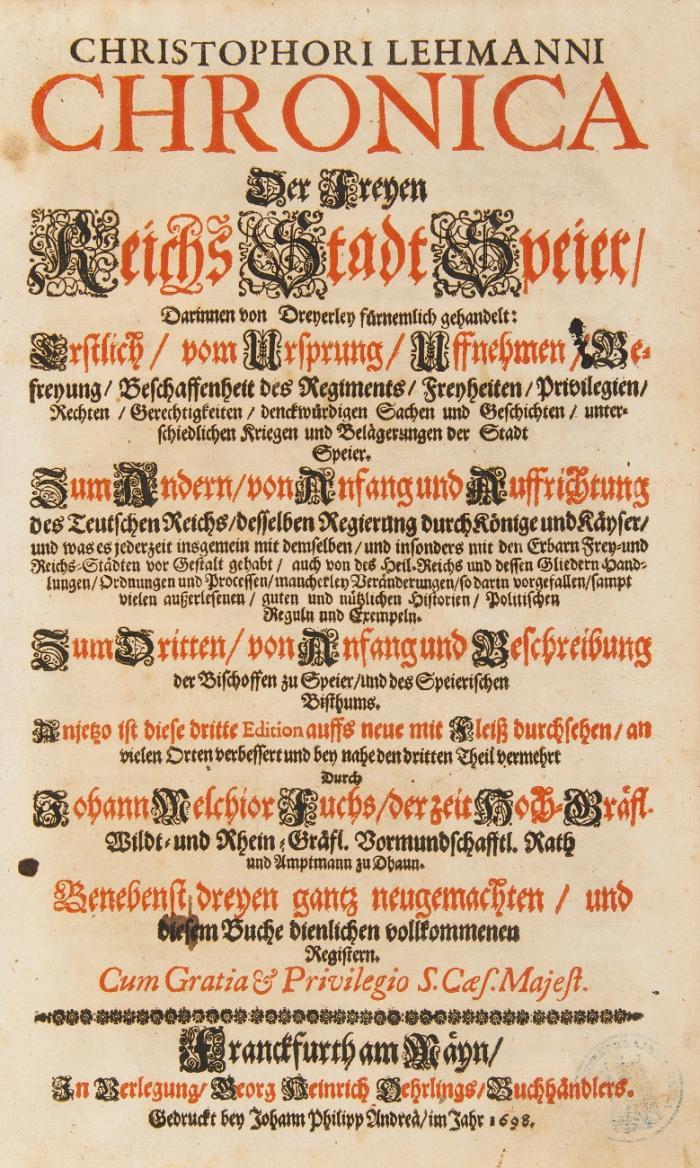 CHRISTOPHORI LEHMANNI
CHRONICA
Der Freyen
Reichs Stadt Speier/
Darinnen von Dreyerley fürnemlich gehandelt:
Erstlich/ vom Ursprung/ Uffnehmen/ Be-
freyung/ Beschaffenheit des Regiments/ Freyheiten/ Privilegien/
Rechten/ Gerechtigkeiten/ denckwürdigen Sachen und Geschichten/ unter-
schiedlichen Kriegen und Belägerungen der Stadt
Speier.
Zum Andern/ von Anfang und Auffrichtung
des Teutschen Reichs/ desselben Regierung durch Könige und Käyser/
und was es jederzeit insgemein mit demselben/ und insonders mit den Erbarn Frey-und
Reichs-Städten vor Gestalt gehabt/ auch von des Heil-Reichs und dessen Gliedern Hand-
lungen/ Ordnungen und Processen/ mancherley Veränderungen/ so darin vorgefallen/ sampt
vielen außerlesenen/ guten und nützlichen Historien/ Politischen
Reguln und Exempeln.
Zum Dritten/ von Anfang und Beschreibung
der Bischoffen zu Speier/ und des Speierischen
Bisthums.
Anjetzo ist diese dritte Edition auffs neue mit Fleiß durchsehen/ an
vielen Orten verbessert und bey nahe den dritten Theil vermehrt
Durch
Johann Melchior Fuchs/ der zeit Hoch-Gräfl.
Wildt-und Rhein-Gräfl. Vormundschafftl. Rath
und Amptmann zu Dhaun.
Benebenst dreyen gantz neugemachten/ und
diesem Buche dienlichen vollkommenen
Registern.
Cum Gratia & Privilegio S. Cæs. Majest.
Franckfurth am Mäyn/
In Verlegung/ Georg Heinrich Oehrlings/ Buchhändlers.
Gedruckt bey Johann Philipp Andreä/ im Jahr 1698.